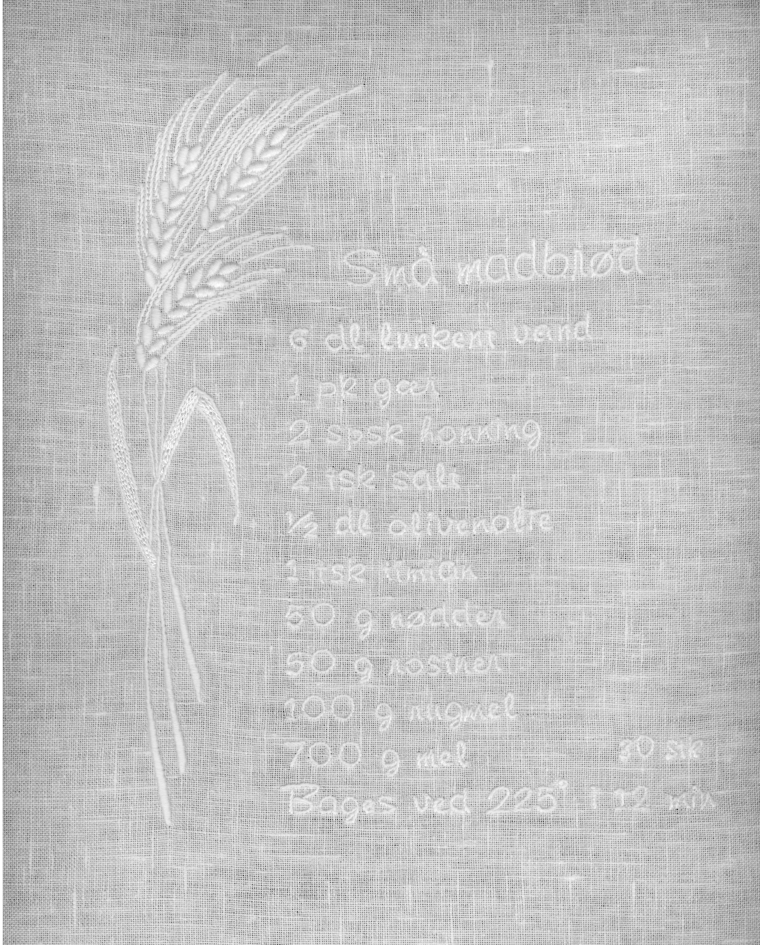 Små madbrød
6 dl lunkent vand
1 pk gær
2 spsk honning
2 tsk salt
½ dl olivenolie
1 tsk timian
50 g nødder
50 g rosiner
100 g rugmel
700 g mel
30 stk
Bages ved 225° i 12 min